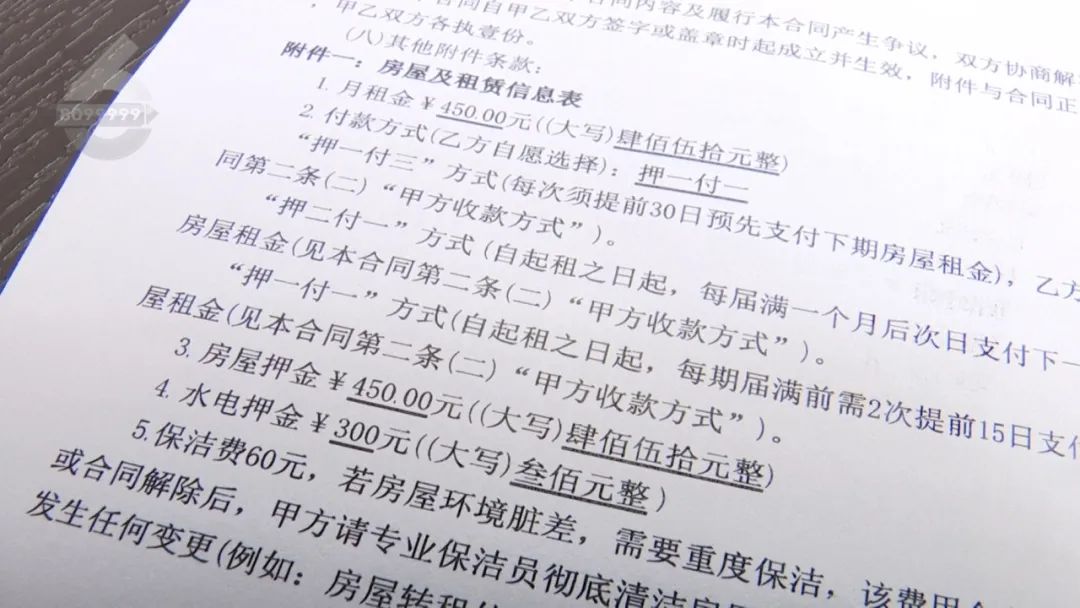 合同内容及履行本合同产生争议，双方协商解
合同自甲乙双方签字或盖章时起成立并生效，附件与合同正
，甲乙双方各执壹份。
(八)其他附件条款：
附件一：房屋及租赁信息表
1. 月租金￥450.00元((大写)肆佰伍拾元整)
2. 付款方式(乙方自愿选择)：押一付一
“押一付三”方式(每次须提前30日预先支付下期房屋租金)，乙方
同第二条(二)“甲方收款方式”)。
“押二付一”方式(自起租之日起，每届满一个月后次日支付下一
房屋租金(见本合同第二条(二)“甲方收款方式”)。
“押一付一”方式(自起租之日起，每期届满前需2次提前15日支付
屋租金(见本合同第二条(二)“甲方收款方式”)。
3. 房屋押金￥450.00元((大写)肆佰伍拾元整)
4. 水电押金￥300元((大写)叁佰元整)
5.保洁费60元，若房屋环境脏差，需要重度保洁，该费用
或合同解除后，甲方请专业保洁员彻底清洁房
发生任何变更(例如：房屋转租